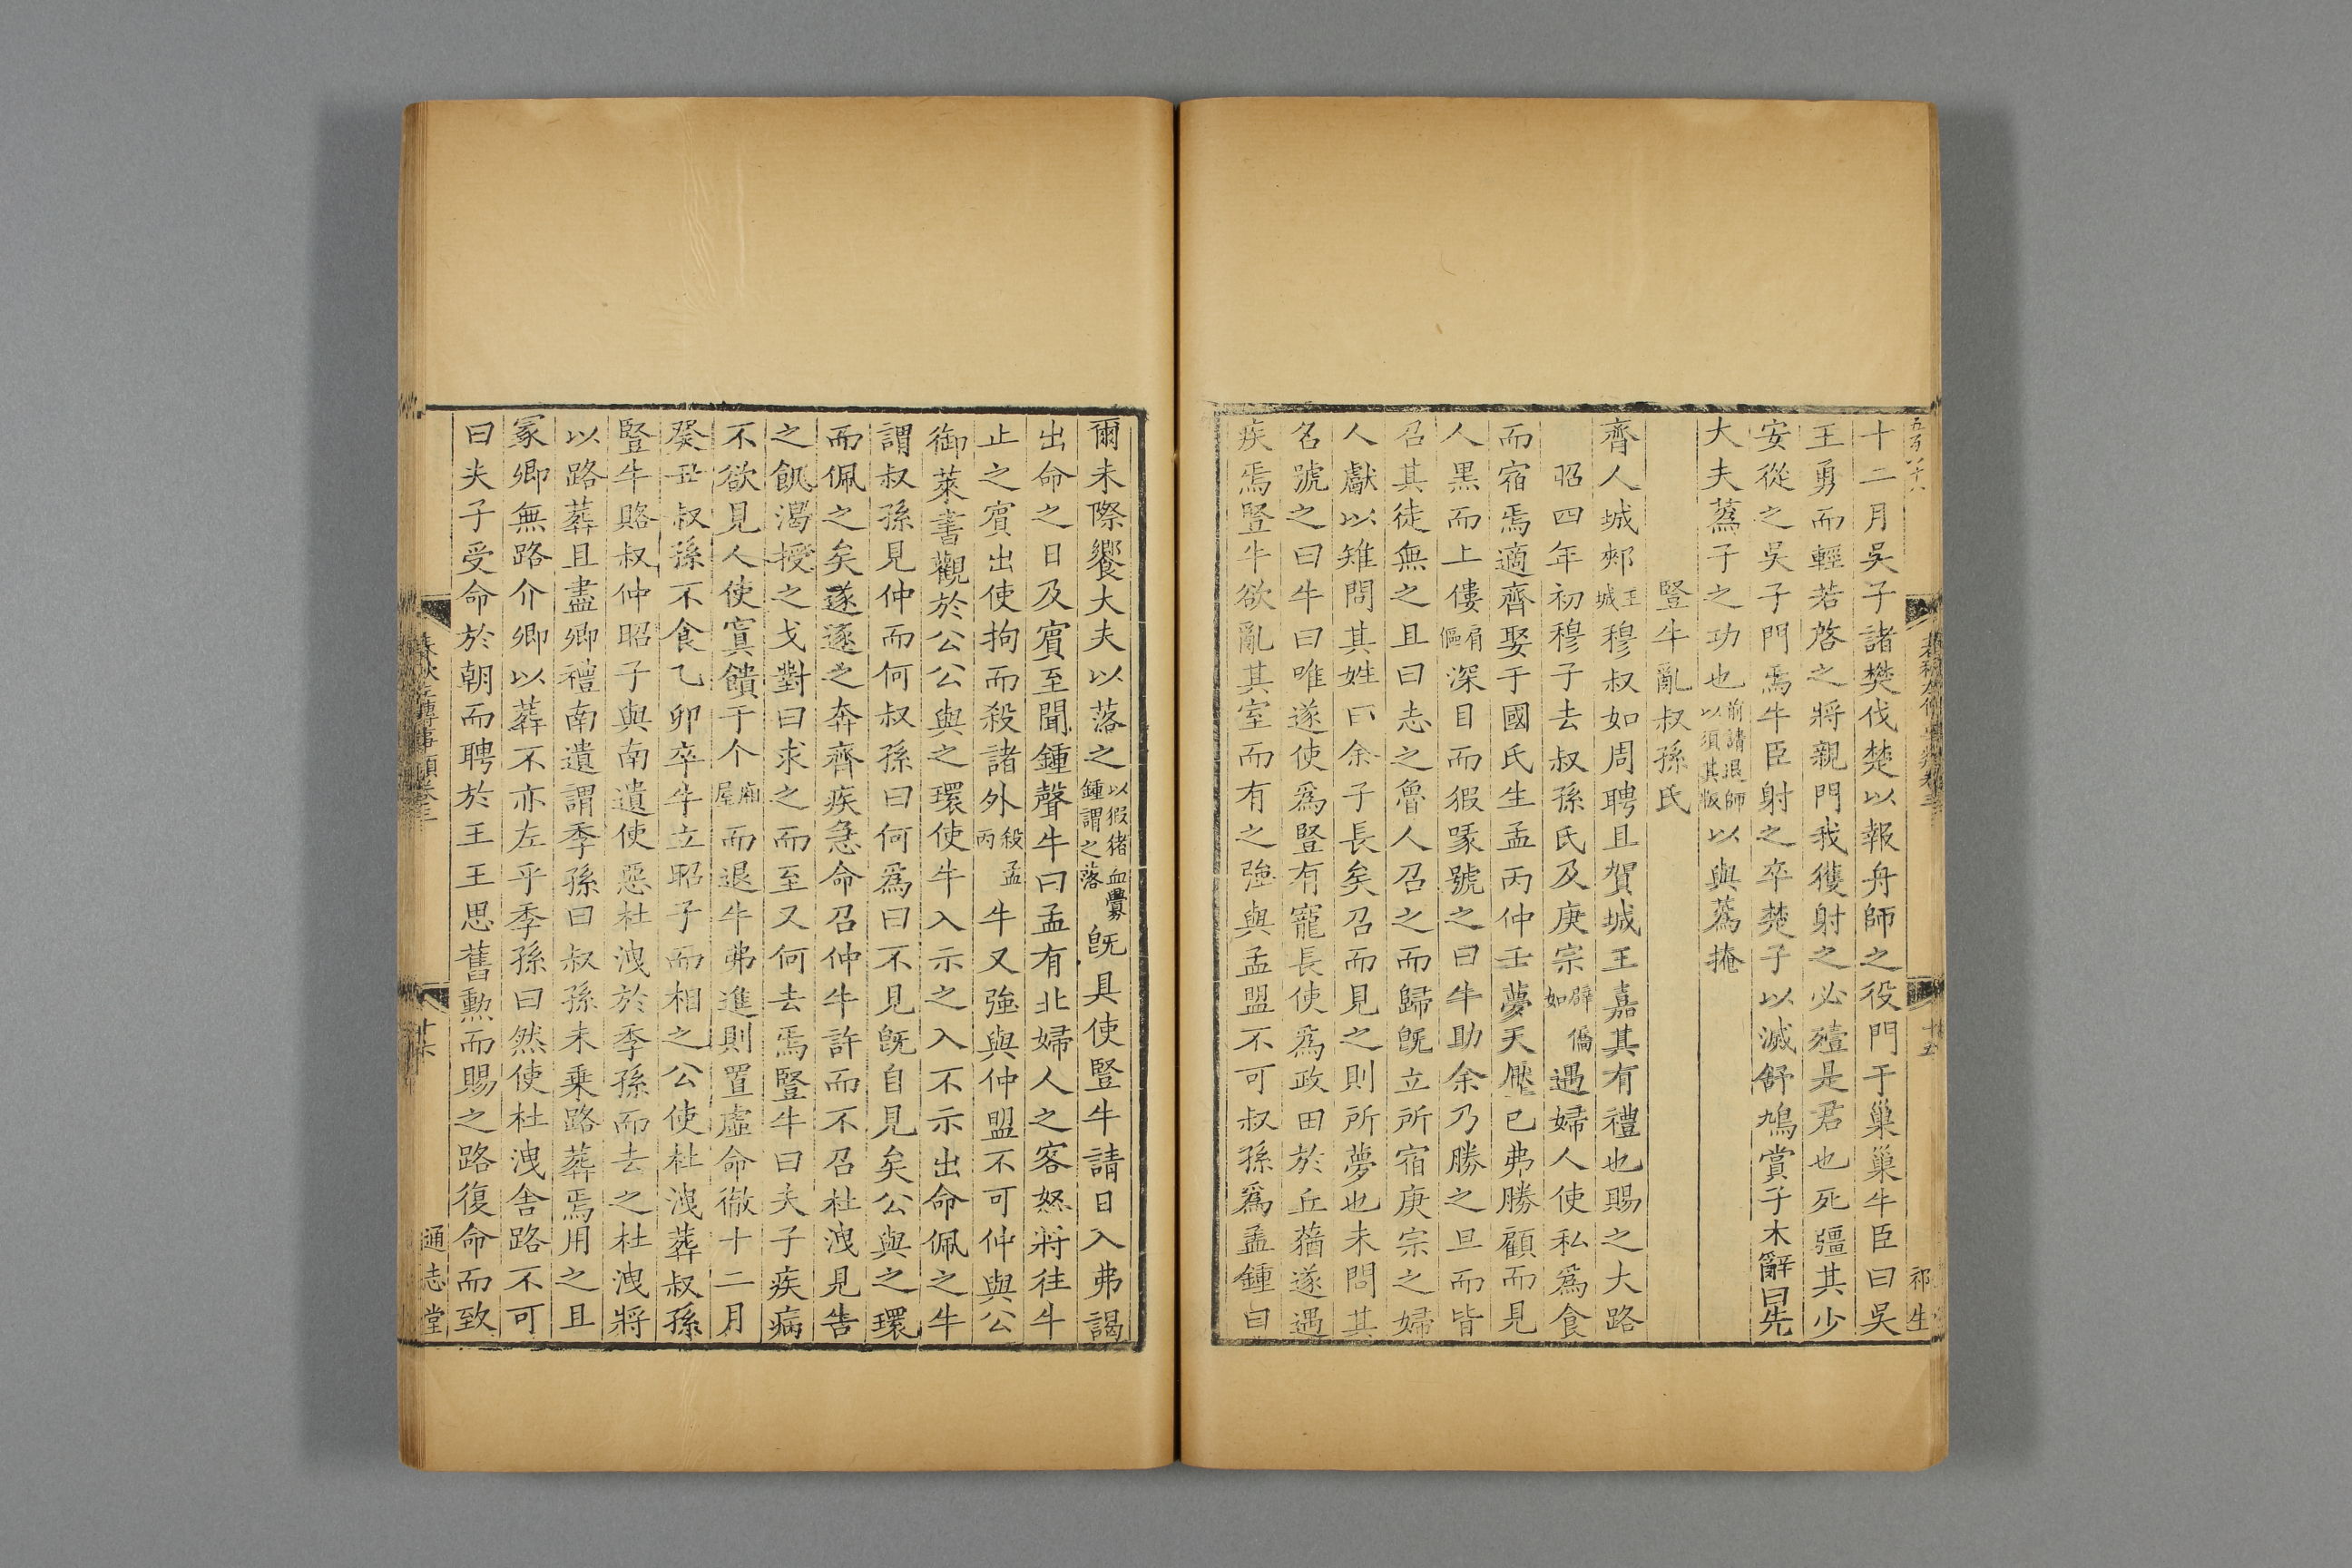 十二月吳子諸樊伐楚以報舟師之役門于巢巢牛臣曰吳
王勇而輕若啓之將親門我獲射之必殪是君也死彊其少
安從之吳子門焉牛臣射之卒楚子以滅舒鳩賞子木辭曰先
大夫蒍子之功也前請退師以須其叛以與蒍掩
豎牛亂叔孫氏
齊人城郟王城穆叔如周聘且賀城王嘉其有禮也賜之大路
昭四年初穆子去叔孫氏及庚宗辟僑如遇婦人使私為食
而宿焉適齊娶于國氏生孟丙仲壬夢天壓已弗勝顧而見
人黑而上僂肩傴深目而猳喙號之曰牛助余乃勝之旦而皆
召其徒無之且曰志之魯人召之而歸旣立所宿庚宗之婦
人獻以雉問其姓曰余子長矣召而見之則所夢也未問其
名號之曰牛曰唯遂使爲豎有寵長使爲政田於丘蕕遂遇
疾焉豎牛欲亂其室而有之強與孟盟不可叔孫爲孟鍾曰
祁生
爾未際饗大夫以落之以猳猪血釁鍾謂之落旣具使豎牛請日入弗謁
出命之日及賓至聞鍾聲牛曰孟有北婦人之客怒將往牛
止之賓出使拘而殺諸外殺孟丙牛又強與仲盟不可仲與公
御萊書觀於公公與之環使牛入示之入不示出命佩之牛
謂叔孫見仲而何叔孫曰何爲曰不見旣自見矣公與之環
而佩之矣遂逐之奔齊疾急命召仲牛許而不召杜洩見告
之飢渴授之戈對曰求之而至又何去焉豎牛曰夫子疾病
不欲見人使寘饋于个廂屋而退牛弗進則置虛命徹十二月
癸丑叔孫不食乙卯卒牛立昭子而相之公使杜洩葬叔孫
豎牛賂叔仲昭子與南遺使惡杜洩於季孫而去之杜洩將
以路葬且盡卿禮南遺謂季孫曰叔孫未乗路葬焉用之且
冢卿無路介卿以葬不亦左乎季孫曰然使杜洩舍路不可
曰夫子受命於朝而聘於王王思舊勲而賜之路復命而致
通志堂